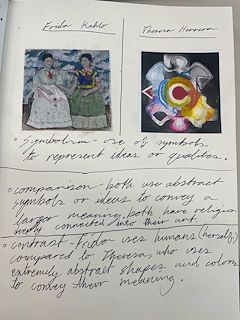 Frida Kahlo
Theresa Herrera
• Symbolism - use of symbols
to represent ideas or qualities.
• comparison - both use abstract
symbols or ideas to convey a
larger meaning, both have religion
connected into their art.
• contrast - frida uses humans (herself)
compared to Theresa, who uses
extremely abstract shapes and colors
to convey their meaning.